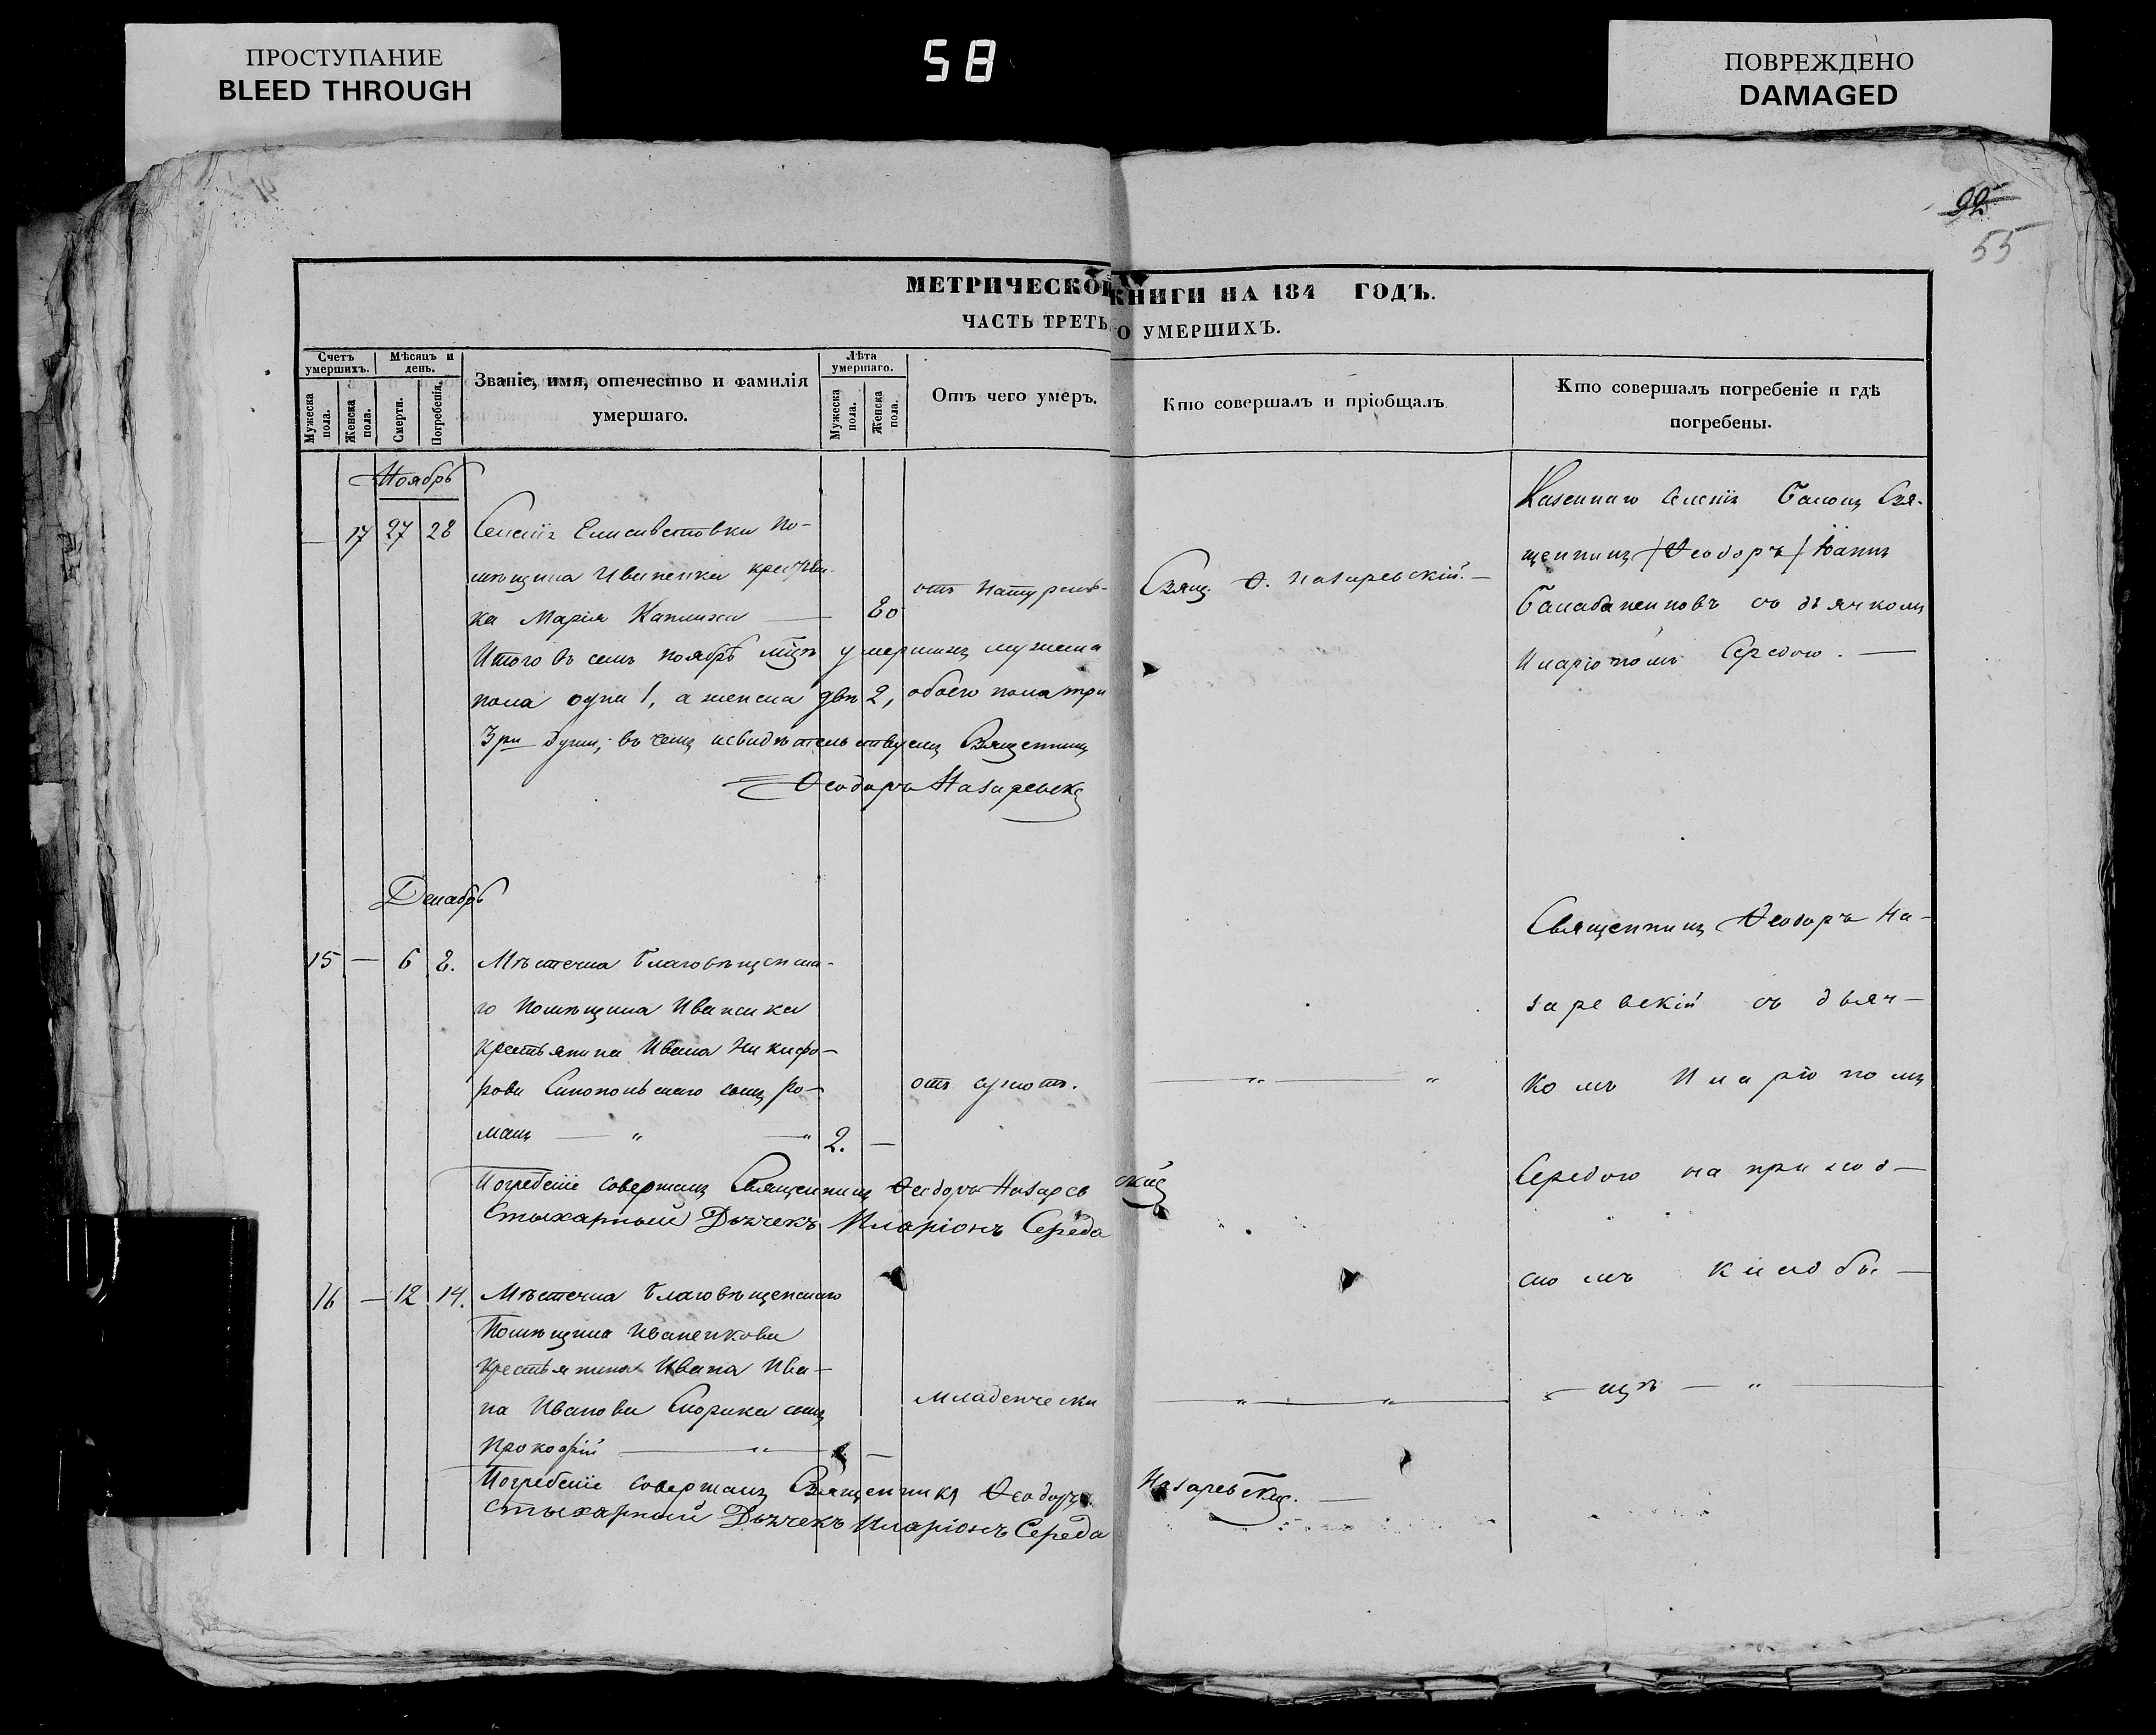 ПРОСТУПАНИЕ
BLEED THROUGH
58
ПОВРЕЖДЕНО
DAMAGED
92
55
МЕТРИЧЕСКОЙ КНИГИ НА 184 ГОДЪ.
ЧАСТЬ ТРЕТЬ О УМЕРШИХЪ.
Счетъ умершихъ.
Мужеска пола.
Женска пола.
Мѣсяцъ и день.
Смерти.
Погребенія.
Званіе, имя, отечество и фамилія
умершаго.
Лѣта умершаго.
Мужеска пола.
Женска пола.
Отъ чего умеръ.
Кто совершалъ и пріобщалъ
Кто совершалъ погребеніе и гдѣ
погребены.
Ноябрь
— 17 27 28 Селенія Елисаветовки по-
мѣщика Иваненка
ка Марія — 80
отъ натураль-
Свящ. Ѳ. Назаревскій. —
Казеннаго селенія Свя-
щенникъ /Ѳеодоръ/ Іоаннъ
съ дьячкомъ
Иларіономъ Середою. —
Итого въ семъ ноябрѣ м͠цѣ умершихъ мужеска
пола одна 1, а женска двѣ 2, обоего пола три
3ри души; въ чемъ и свидѣтельствуемъ Священникъ
Ѳеодоръ Назаревскі
Декабрь
15 — 6 8. Мѣстечка Благовѣщенска-
го Помѣщика Иваненка
крестьянина Ивана Никифо-
рова сынъ Ро-
манъ — „ — „ 2. —
— „ — „
Священникъ Ѳеодоръ На-
заревскій съ дьяч-
комъ Иларіономъ
Середою на приход-
скомъ кладби-
Погребеніе совершалъ Священникъ Ѳеодоръ Назаревскій
Стыхарный Дьячекъ Иларіонъ Середа
16 — 12 14. Мѣстечка Благовѣщенскаго
Помѣщика Иваненкова
Крестьянина Ивана Ива-
на Иванова сынъ
Прокофій — „ —
младенчески
— „ — „ —
— щѣ — „ —
Погребеніе совершалъ Священникъ Ѳеодоръ Назаревскій. —
Стыхарный Дьячекъ Иларіонъ Середа